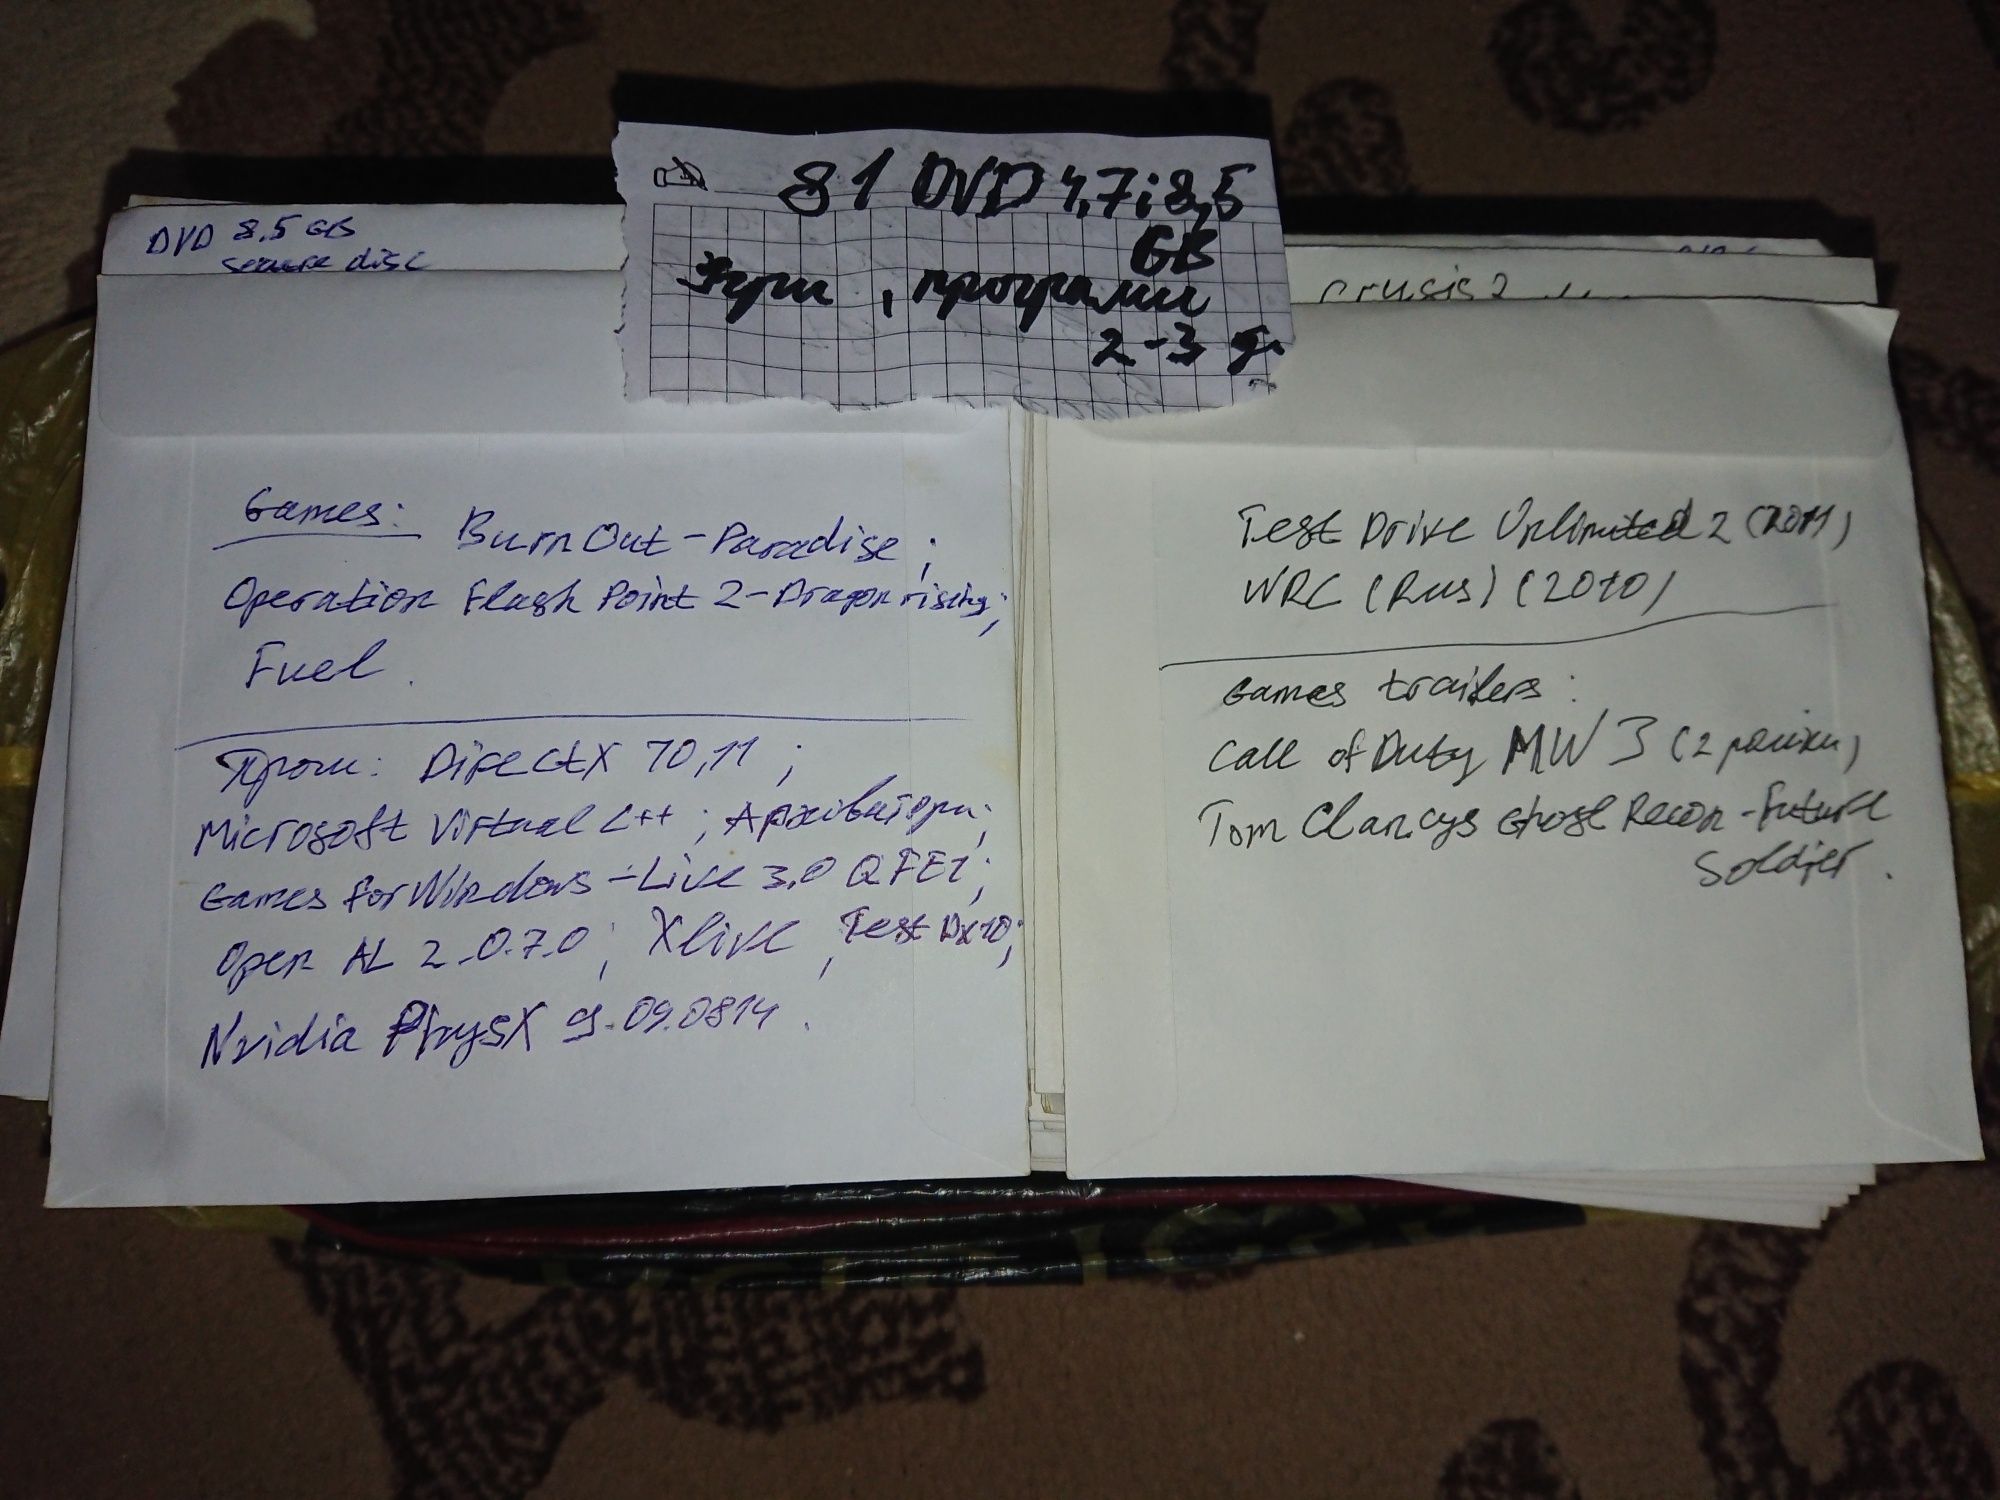 81 DVD 4,7 i 8,5
GB
Ігри, програми
2-3
DVD 8.5 GB
secure disc
Games: BurnOut-Paradise;
Operation Flash Point 2-Dragon rising;
Fuel.
Прогм: DirectX 10,11;
Microsoft Virtual C++; Архіватори;
Games for Windows-Live 3.0 QFE1;
Open AL 2.0.7.0; Xlive, Test Dx10;
Nvidia PhysX 9.09.0814.
crysis 2
Test Drive Unlimited 2 (2011)
WRC (Rus) (2010)
Games trailers:
Call of Duty MW 3 (2
Tom Clancys Ghost Recon-Future
Soldier.